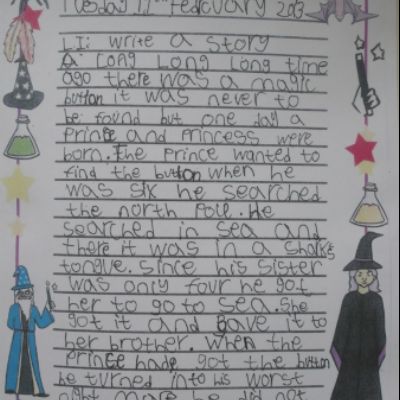 Tuesday 12th February 2013
LI: write a story
A long long long time
ago there was a magic
button it was never to
be found but one day a
Prince and Princess were
born. The Prince wanted to
find the button when he
was six he searched
the north Pole. He
searched in sea and
there it was in a sharks
tongue. Since his sister
was only four he got
her to go to sea. She
got it and gave it to
her brother. When the
Prince hade got the button
he turned into his worst
night mare he did not